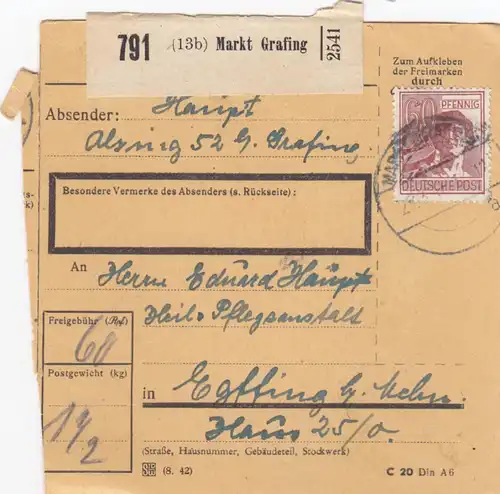 791 (13b) Markt Grafing 2541
Zum Aufkleben
der Freimarken
durch
Absender: Haupt
Alxing 52 b. Grafing
60 PFENNIG
DEUTSCHE POST
Besondere Vermerke des Absenders (s. Rückseite):
An Herrn Eduard Haupt
Heil- Pflegeanstalt
Freigebühr (Rpf)
60
Postgewicht (kg)
1 1/2
in Eglfing b. Mchn.
Haus 25/0.
(Straße, Hausnummer, Gebäudeteil, Stockwerk)
(8. 42)
C 20 Din A6